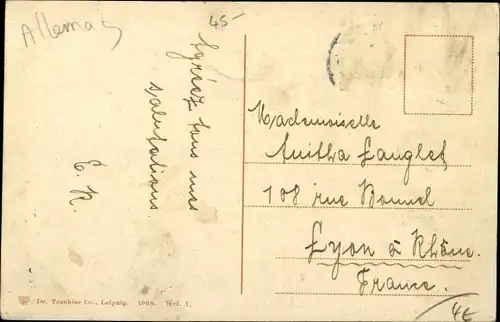 Allemag
45-
Agréez tous mes
salutations.
E. R.
Mademoiselle
Anitha Langlet
108 rue Bonnel
Lyon à Rhône.
France.
Dr. Trenkler Co., Leipzig. 1908. Wei. 1.
4€